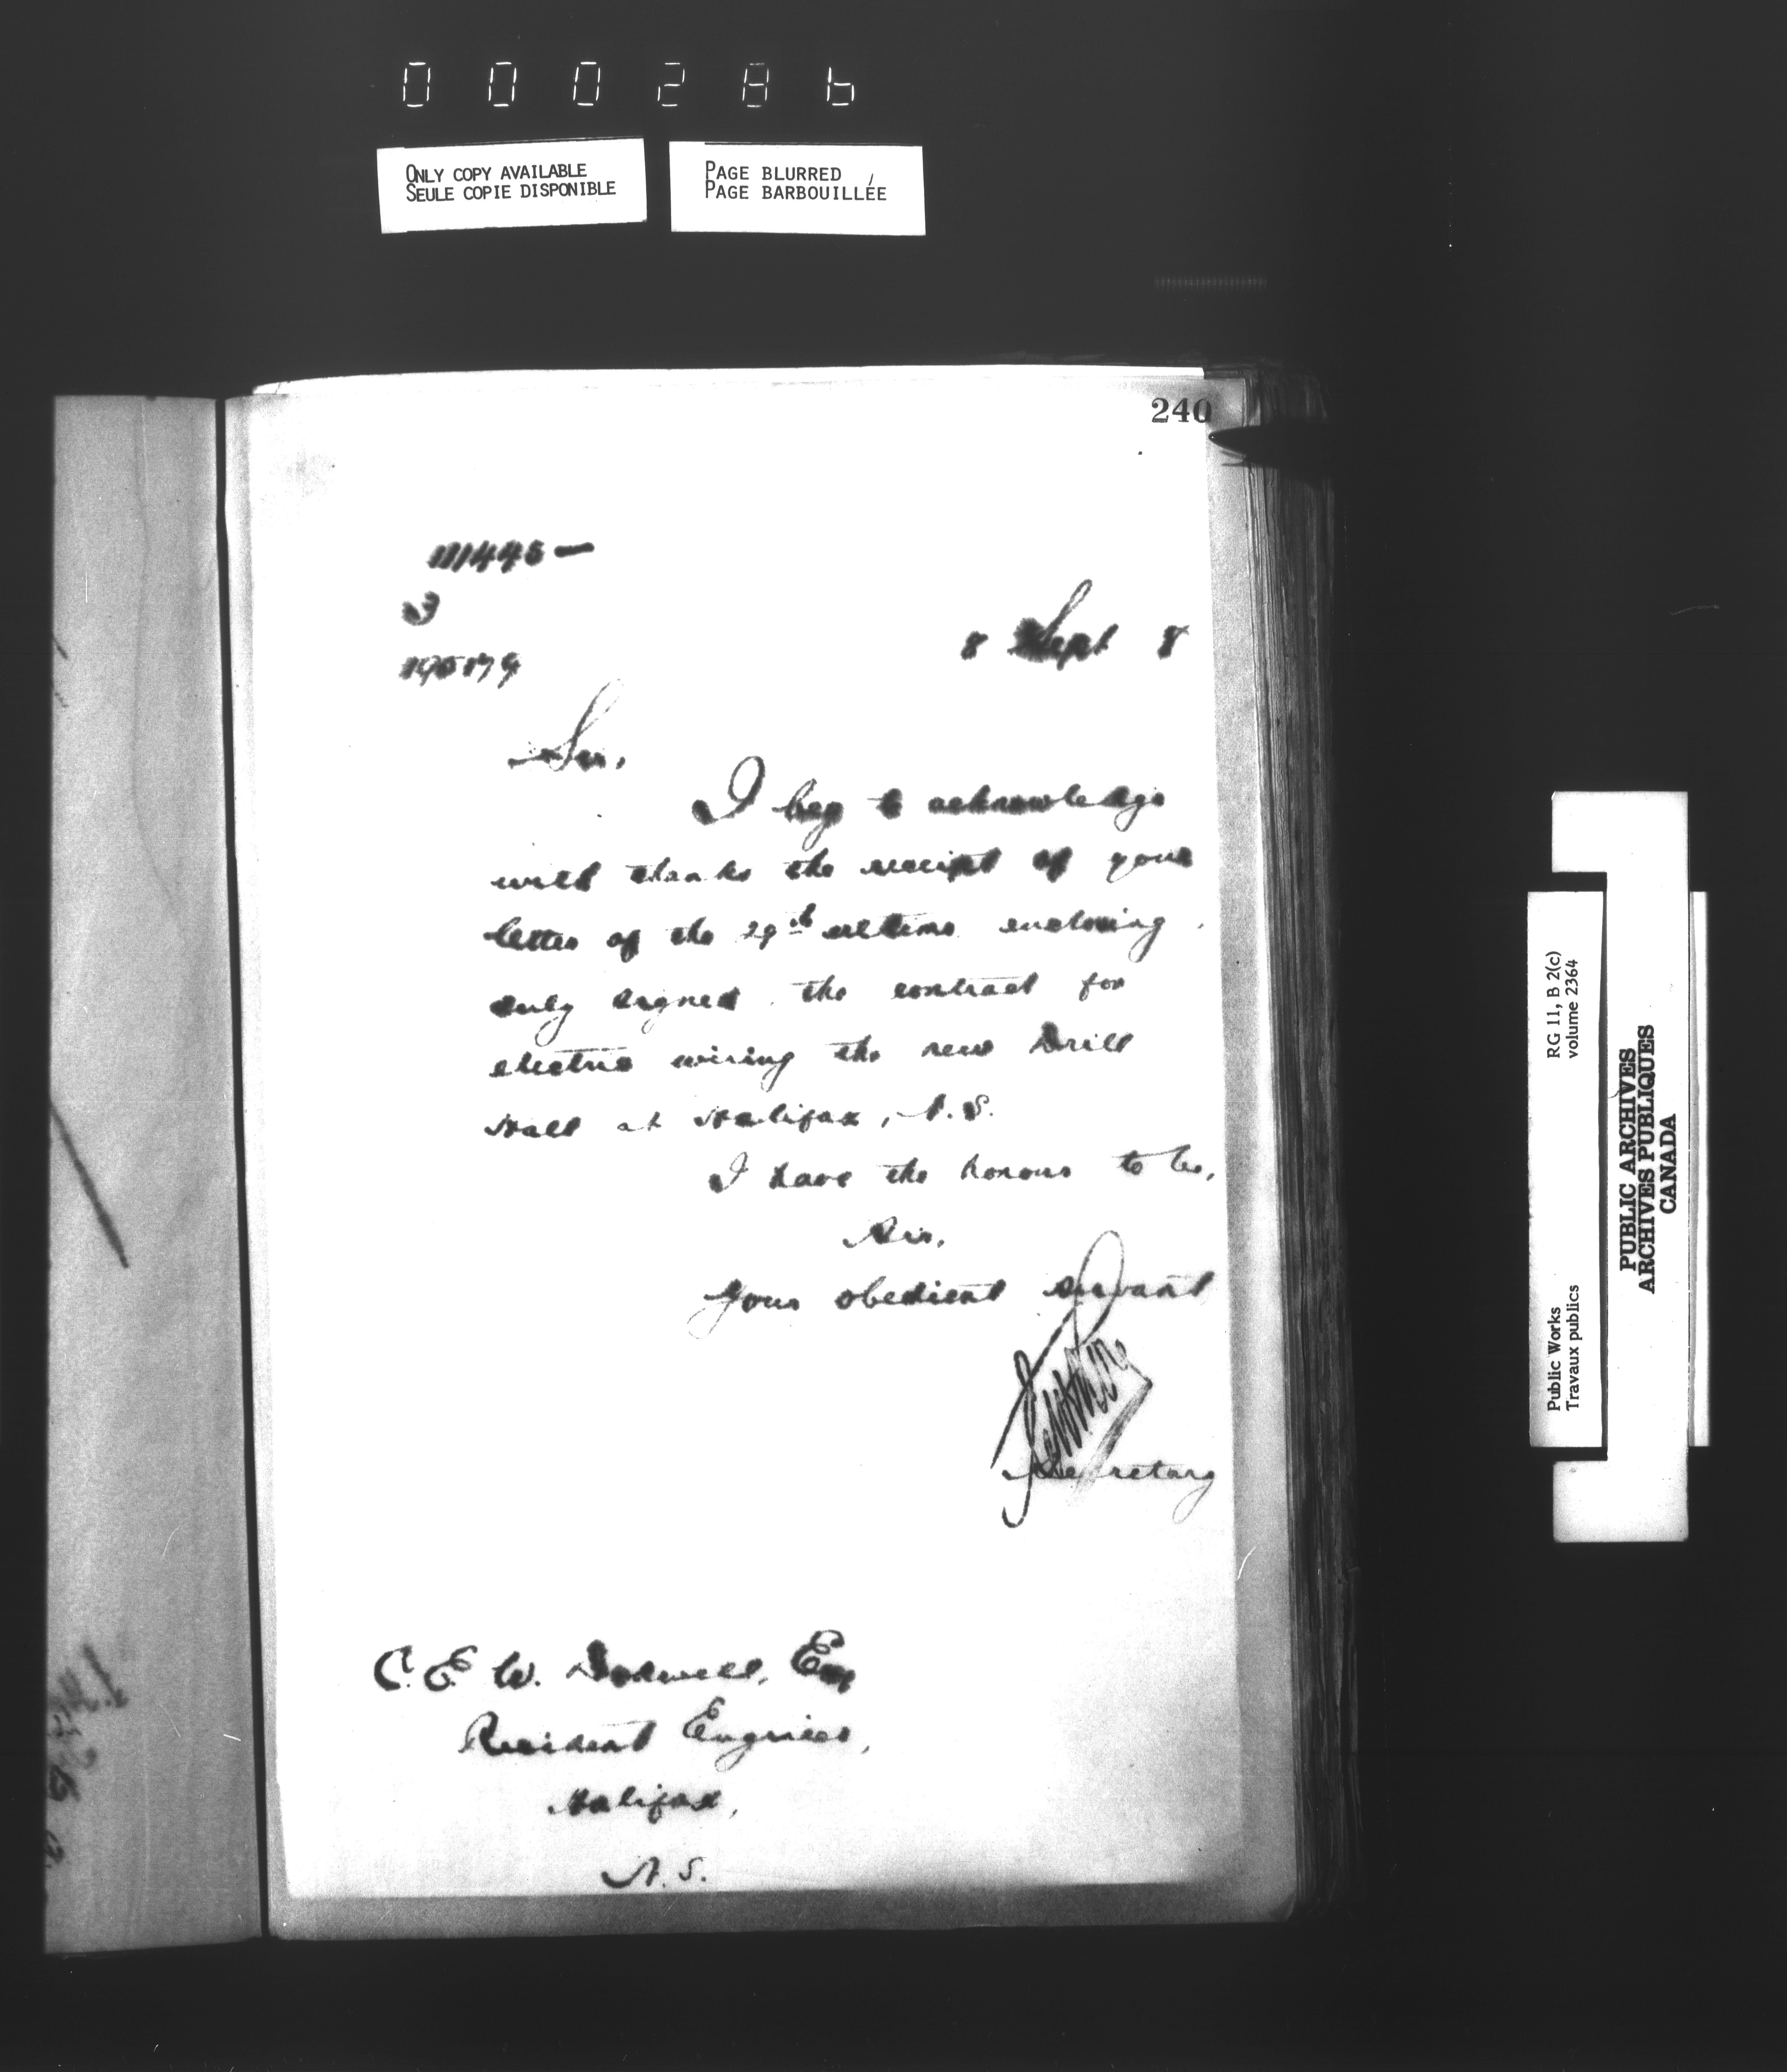 000286
ONLY COPY AVAILABLE
SEULE COPIE DISPONIBLE
PAGE BLURRED
PAGE BARBOUILLÉE
240
3
8 Sept 8
Sir,
I beg to acknowledge
with thanks the receipt of your
letter of the 29th ultimo enclosing
duly signed the contract for
electric wiring the new Drill
Hall at Halifax, N.S.
I have the honour to be,
Sir,
Your obedient servant
Secretary
C. E. W. Dodwell, Esq
Resident Engineer,
Halifax,
N. S.
RG 11, B 2(c)
volume 2364
Public Works
Travaux publics
PUBLIC ARCHIVES
ARCHIVES PUBLIQUES
CANADA